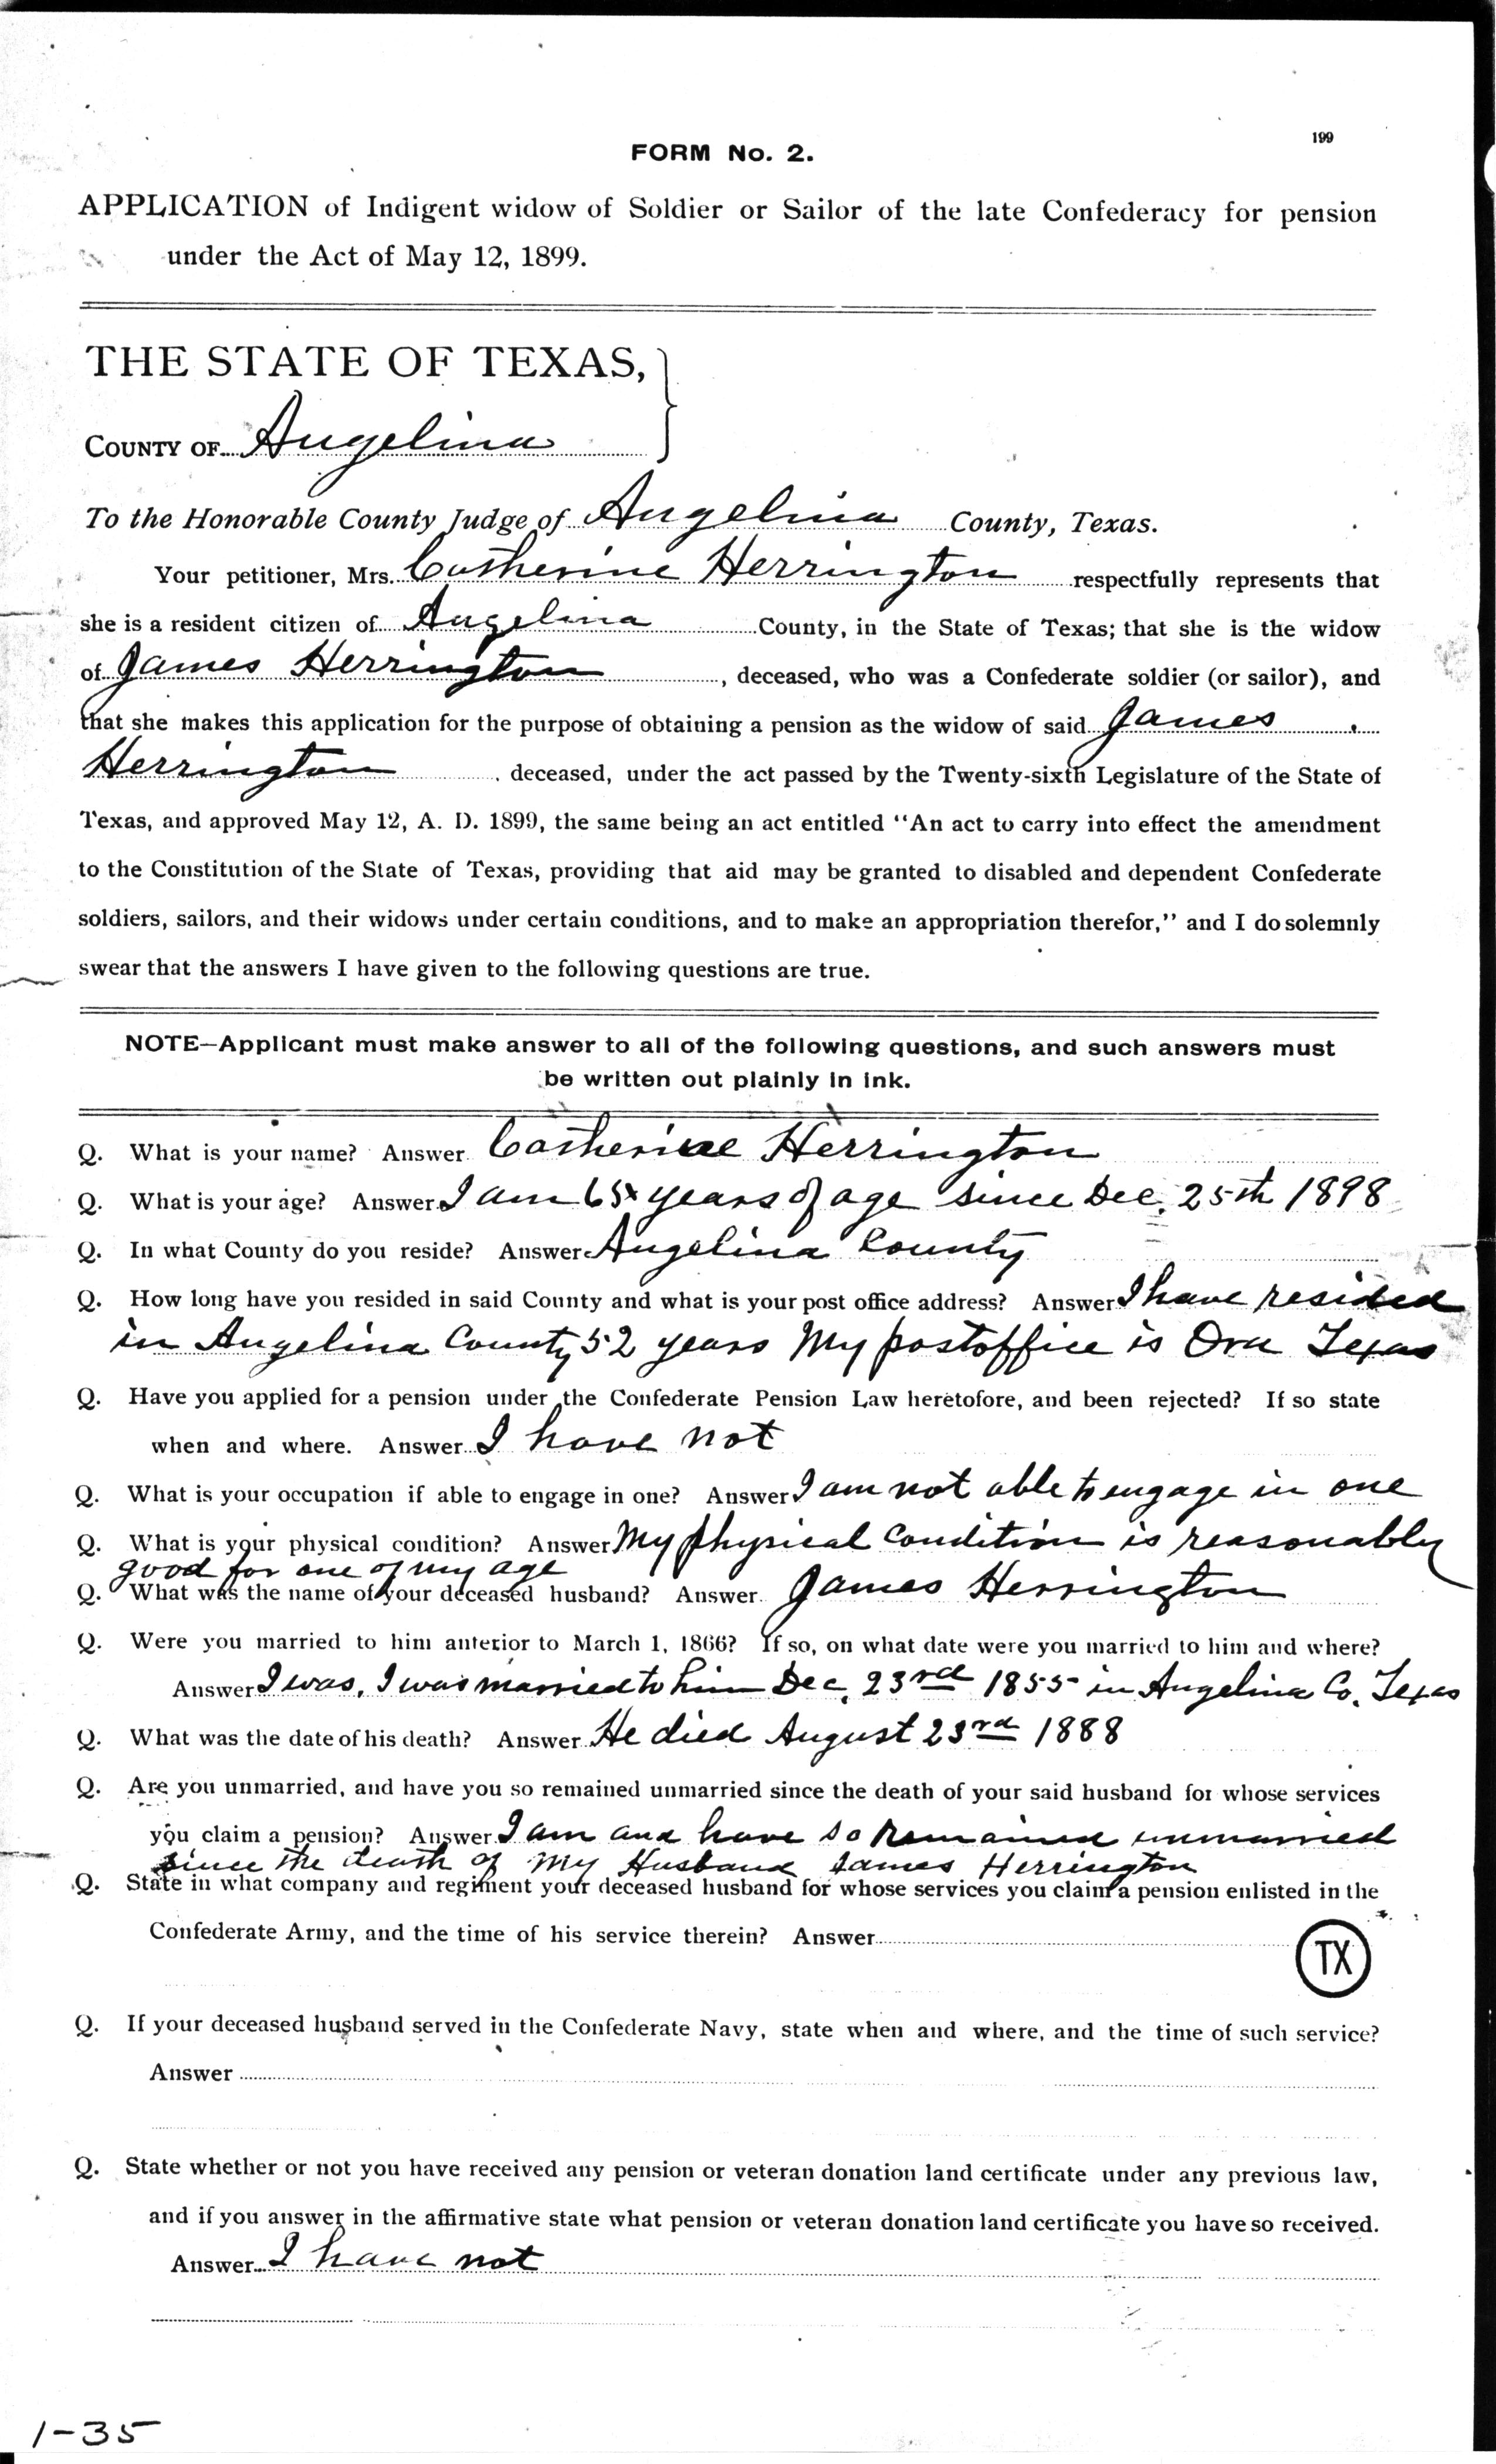 199
FORM No. 2.
APPLICATION of Indigent widow of Soldier or Sailor of the late Confederacy for pension
under the Act of May 12, 1899.
THE STATE OF TEXAS,
COUNTY OF Angelina
To the Honorable County Judge of Angelina County, Texas.
Your petitioner, Mrs. Catherine Herrington respectfully represents that
she is a resident citizen of Angelina County, in the State of Texas; that she is the widow
of James Herrington, deceased, who was a Confederate soldier (or sailor), and
that she makes this application for the purpose of obtaining a pension as the widow of said James
Herrington, deceased, under the act passed by the Twenty-sixth Legislature of the State of
Texas, and approved May 12, A. D. 1899, the same being an act entitled "An act to carry into effect the amendment
to the Constitution of the State of Texas, providing that aid may be granted to disabled and dependent Confederate
soldiers, sailors, and their widows under certain conditions, and to make an appropriation therefor," and I do solemnly
swear that the answers I have given to the following questions are true.
NOTE—Applicant must make answer to all of the following questions, and such answers must
be written out plainly in ink.
Q. What is your name? Answer Catherine Herrington
Q. What is your age? Answer I am years of age since Dec. 25th 1898
Q. In what County do you reside? Answer Angelina County
Q. How long have you resided in said County and what is your post office address? Answer I have resided
in Angelina County 52 years My postoffice is Ora Texas
Q. Have you applied for a pension under the Confederate Pension Law heretofore, and been rejected? If so state
when and where. Answer I have not
Q. What is your occupation if able to engage in one? Answer I am not able to engage in one
Q. What is your physical condition? Answer My physical condition is reasonably
good for one of my age
Q. What was the name of your deceased husband? Answer. James Herrington
Q. Were you married to him anterior to March 1, 1866? If so, on what date were you married to him and where?
Answer I was, I was married to him Dec. 23rd 1855 in Angelina Co. Texas
Q. What was the date of his death? Answer He died August 23rd 1888
Q. Are you unmarried, and have you so remained unmarried since the death of your said husband for whose services
you claim a pension? Answer I am and have so remained unmarried
since the death of my Husband James Herrington
Q. State in what company and regiment your deceased husband for whose services you claim a pension enlisted in the
Confederate Army, and the time of his service therein? Answer
TX
Q. If your deceased husband served in the Confederate Navy, state when and where, and the time of such service?
Answer
Q. State whether or not you have received any pension or veteran donation land certificate under any previous law,
and if you answer in the affirmative state what pension or veteran donation land certificate you have so received.
Answer I have not
1-35